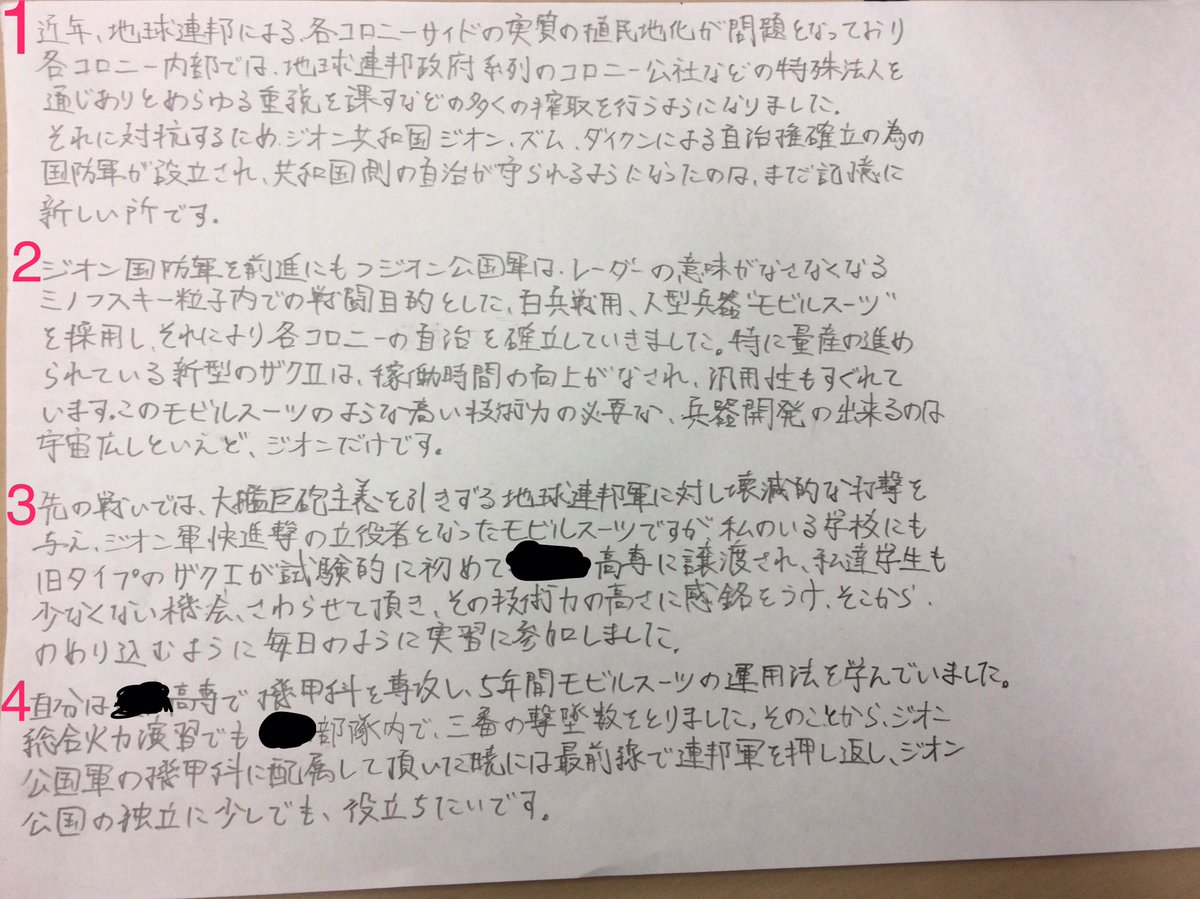 1 近年、地球連邦による、各コロニーサイドの実質の植民地化が問題となっており
各コロニー内部では、地球連邦政府系列のコロニー公社などの特殊法人を
通じありとあらゆる重税を課すなどの多くの搾取を行うようになりました。
それに対抗するため、ジオン共和国ジオン・ズム・ダイクンによる自治権確立の為の
国防軍が設立され、共和国側の自治が守られるようになったのは、まだ記憶に
新しい所です。
2 ジオン国防軍を前進にもつジオン公国軍は、レーダーの意味がなさなくなる
ミノフスキー粒子内での戦闘目的とした、白兵戦用、人型兵器“モビルスーツ”
を採用し、それにより各コロニーの自治を確立していきました。特に量産の進め
られている新型のザクⅡは、稼働時間の向上がなされ、汎用性もすぐれて
います。このモビルスーツのような高い技術力の必要な、兵器開発の出来るのは
宇宙広しといえど、ジオンだけです。
3 先の戦いでは、大艦巨砲主義を引きずる地球連邦軍に対し壊滅的な打撃を
与え、ジオン軍快進撃の立役者となったモビルスーツですが、私のいる学校にも
旧タイプのザクⅠが試験的に初めて高専に譲渡され、私達学生も
少なくない機会、さわらせて頂き、その技術力の高さに感銘をうけ、そこから、
のめり込むように毎日のように実習に参加しました。
4 自分は高専で機甲科を専攻し、5年間モビルスーツの運用法を学んでいました。
総合火力演習でも部隊内で、三番の撃墜数をとりました。そのことから、ジオン
公国軍の機甲科に配属して頂いた暁には最前線で連邦軍を押し返し、ジオン
公国の独立に少しでも、役立ちたいです。